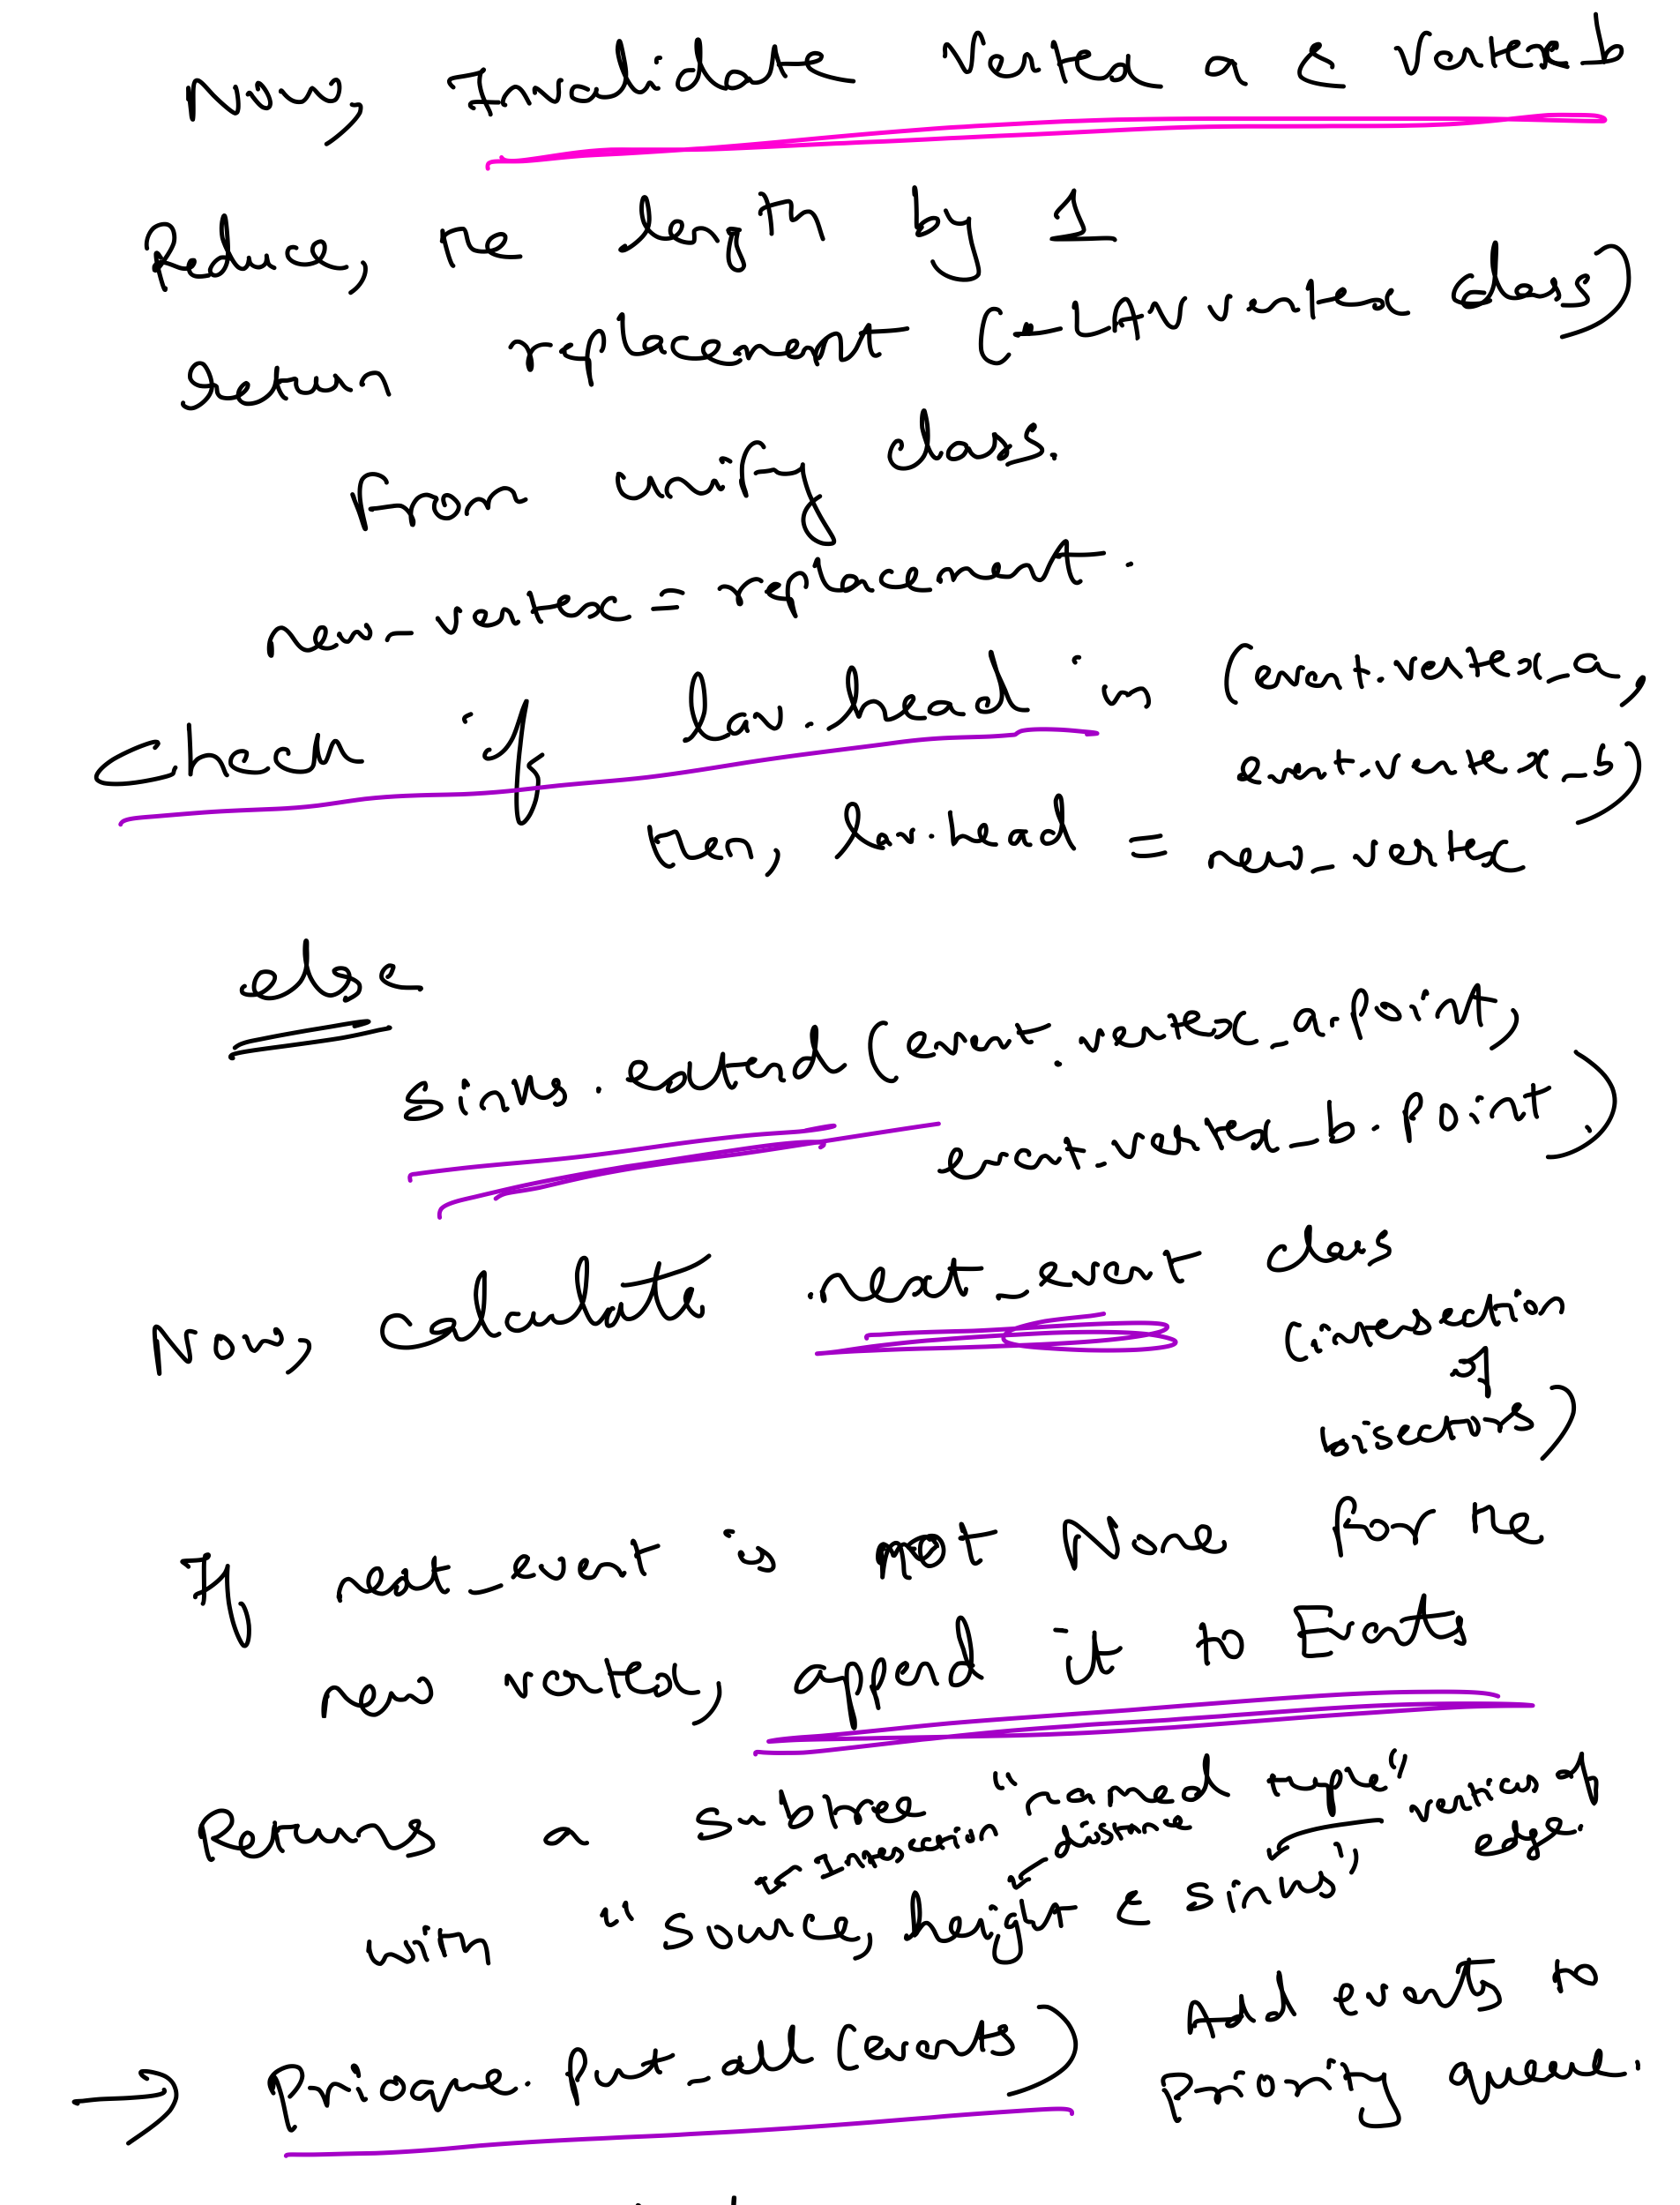 Now, Invalidate vertex a & vertex b
Reduce, the length by 1
return replacement (-LAV vertex class)
from unify class.
new_vertex = replacement.
check if lav.head in (event.vertex_a,
event.vertex_b)
then, lav.head = new_vertex
else
sinks.extend (event.vertex_a.point,
event.vertex_b.point)
Now, calculate next_event class
(intersection
of
bisectors)
If next_event is not None for the
new vertex, append it to Events
Returns a subtree "named tuple"
← Intersection ← distance vertices of
edge.
with "source, height & sinks"
→ Prioque.put_all (events) Add events to
priority queue.